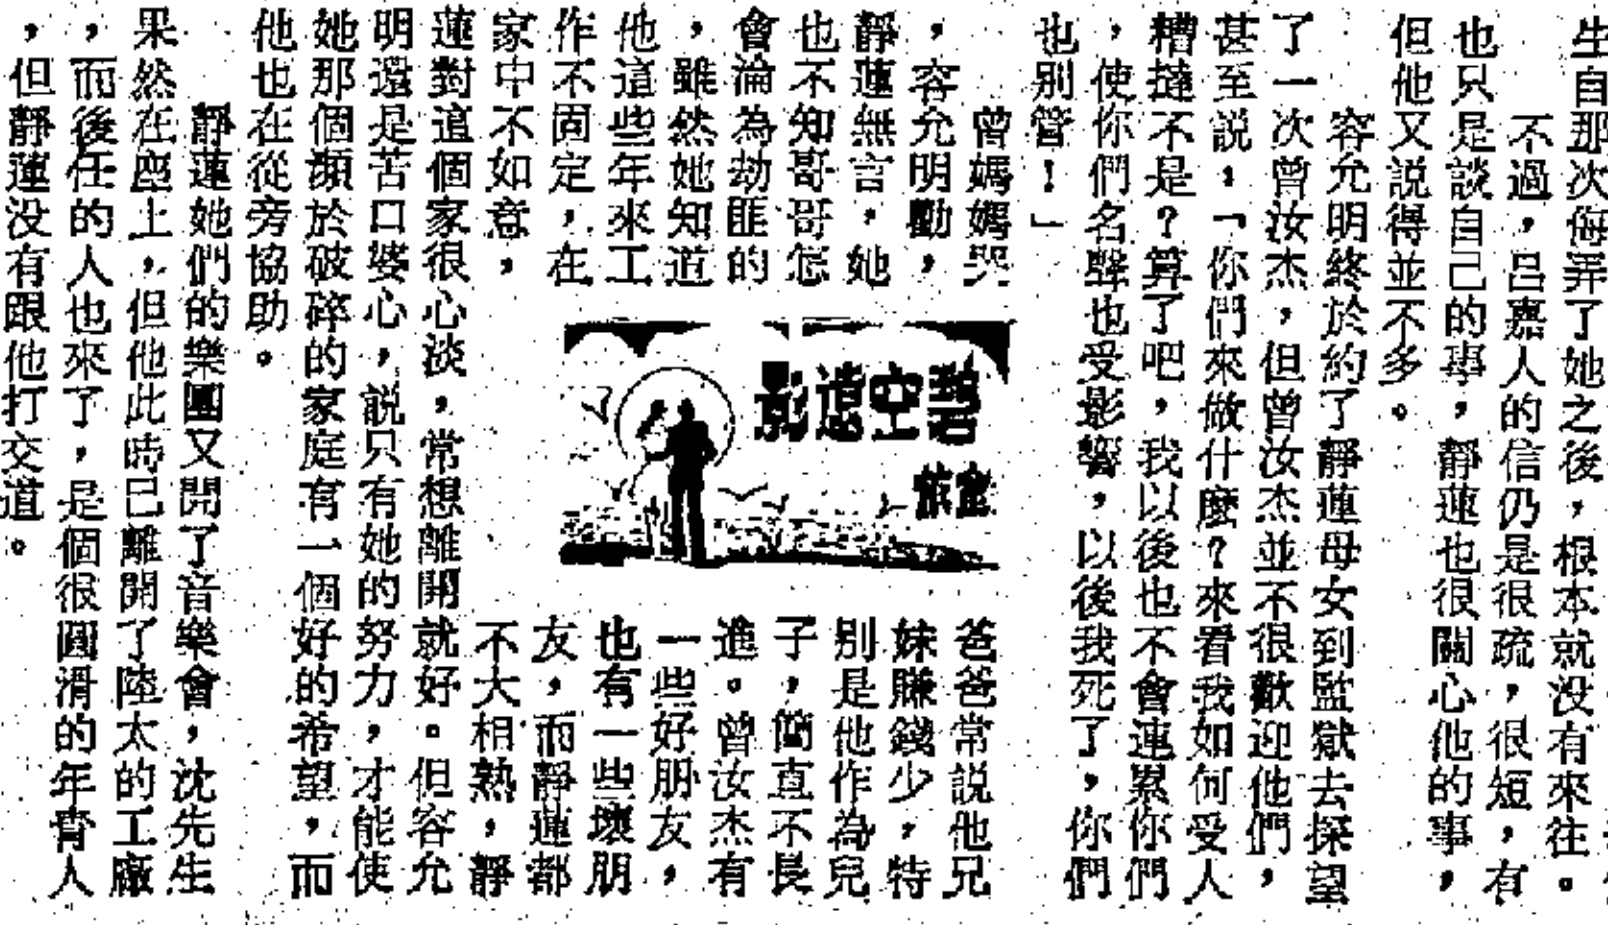 生自那次侮弄了她之後，根本就没有來往。
不過，呂嘉人的信仍是很疏，很短，有
也只是談自己的事，靜蓮也很關心他的事，
但他又説得並不多。
容允明終於約了靜蓮母女到監獄去探望
了一次曾汝杰，但曾汝杰並不很歡迎他們，
甚至説：「你們來做什麽？來看我如何受人
糟撻不是？算了吧，我以後也不會連累你們
，使你們名聲也受影響，以後我死了，你們
也别管！」
曾媽媽哭
，容允明勸，
靜蓮無言，她
也不知哥哥怎
會淪為劫匪的
，雖然她知道
他這些年來工
作不固定，在
家中不如意，
碧空遺影
爸爸常説他兄
妹賺錢少，特
别是他作為兒
子，簡直不長
進。曾汝杰有
一些好朋友，
也有一些壞朋
友，而靜蓮都
不大相熟，靜
蓮對這個家很心淡，常想離開就好。但容允
明還是苦口婆心，説只有她的努力，才能使
她那個瀕於破碎的家庭有一個好的希望，而
他也在從旁協助。
靜蓮她們的樂團又開了音樂會，沈先生
果然在座上，但他此時已離開了陸太的工廠
，而後任的人也來了，是個很圓滑的年青人
，但靜蓮没有跟他打交道。